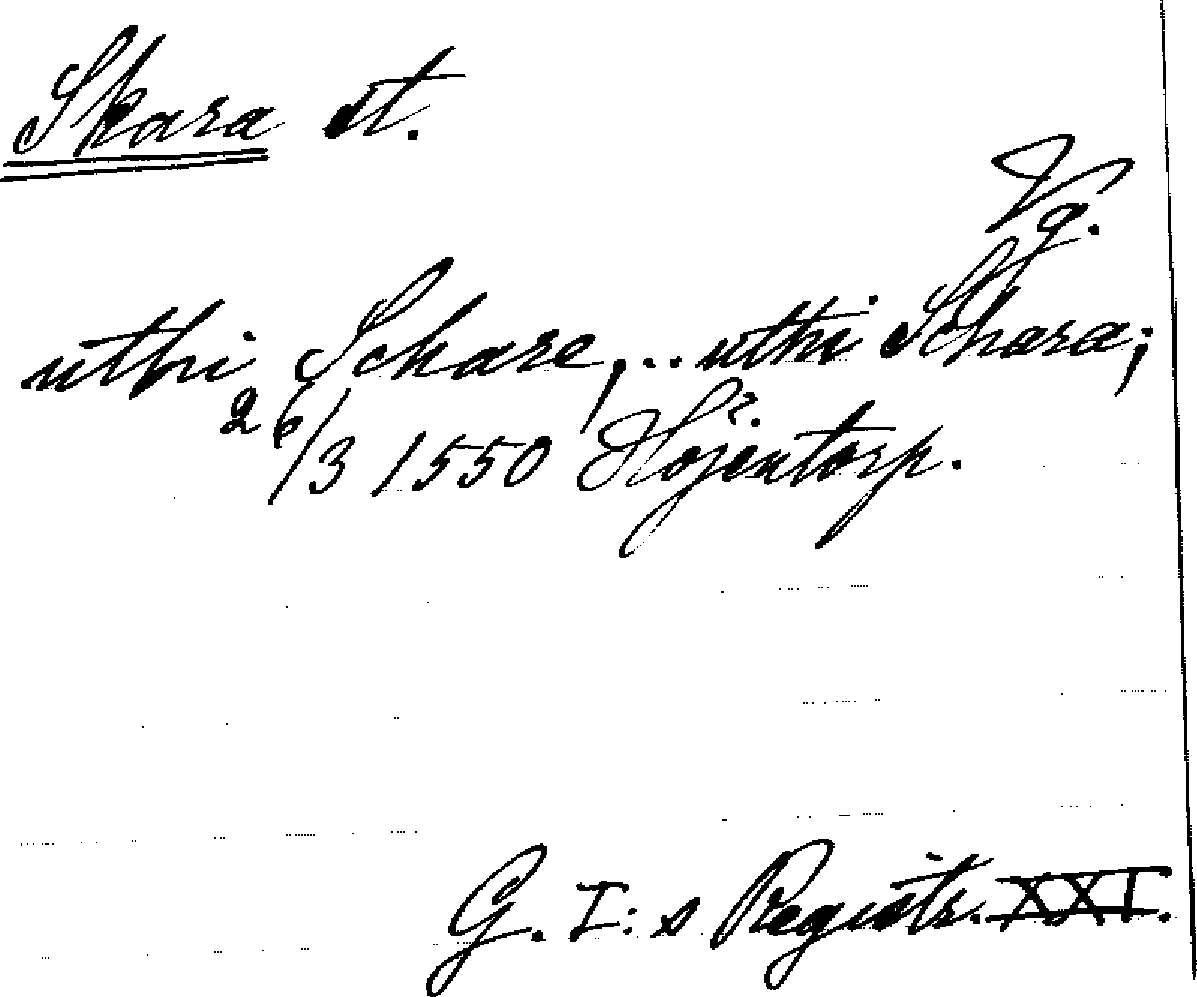 Skara st.
Vg.
uthi Schare, .. uthi Schara;
26/3 1550 Höjentorp.
G. I:s Registr. XXI.